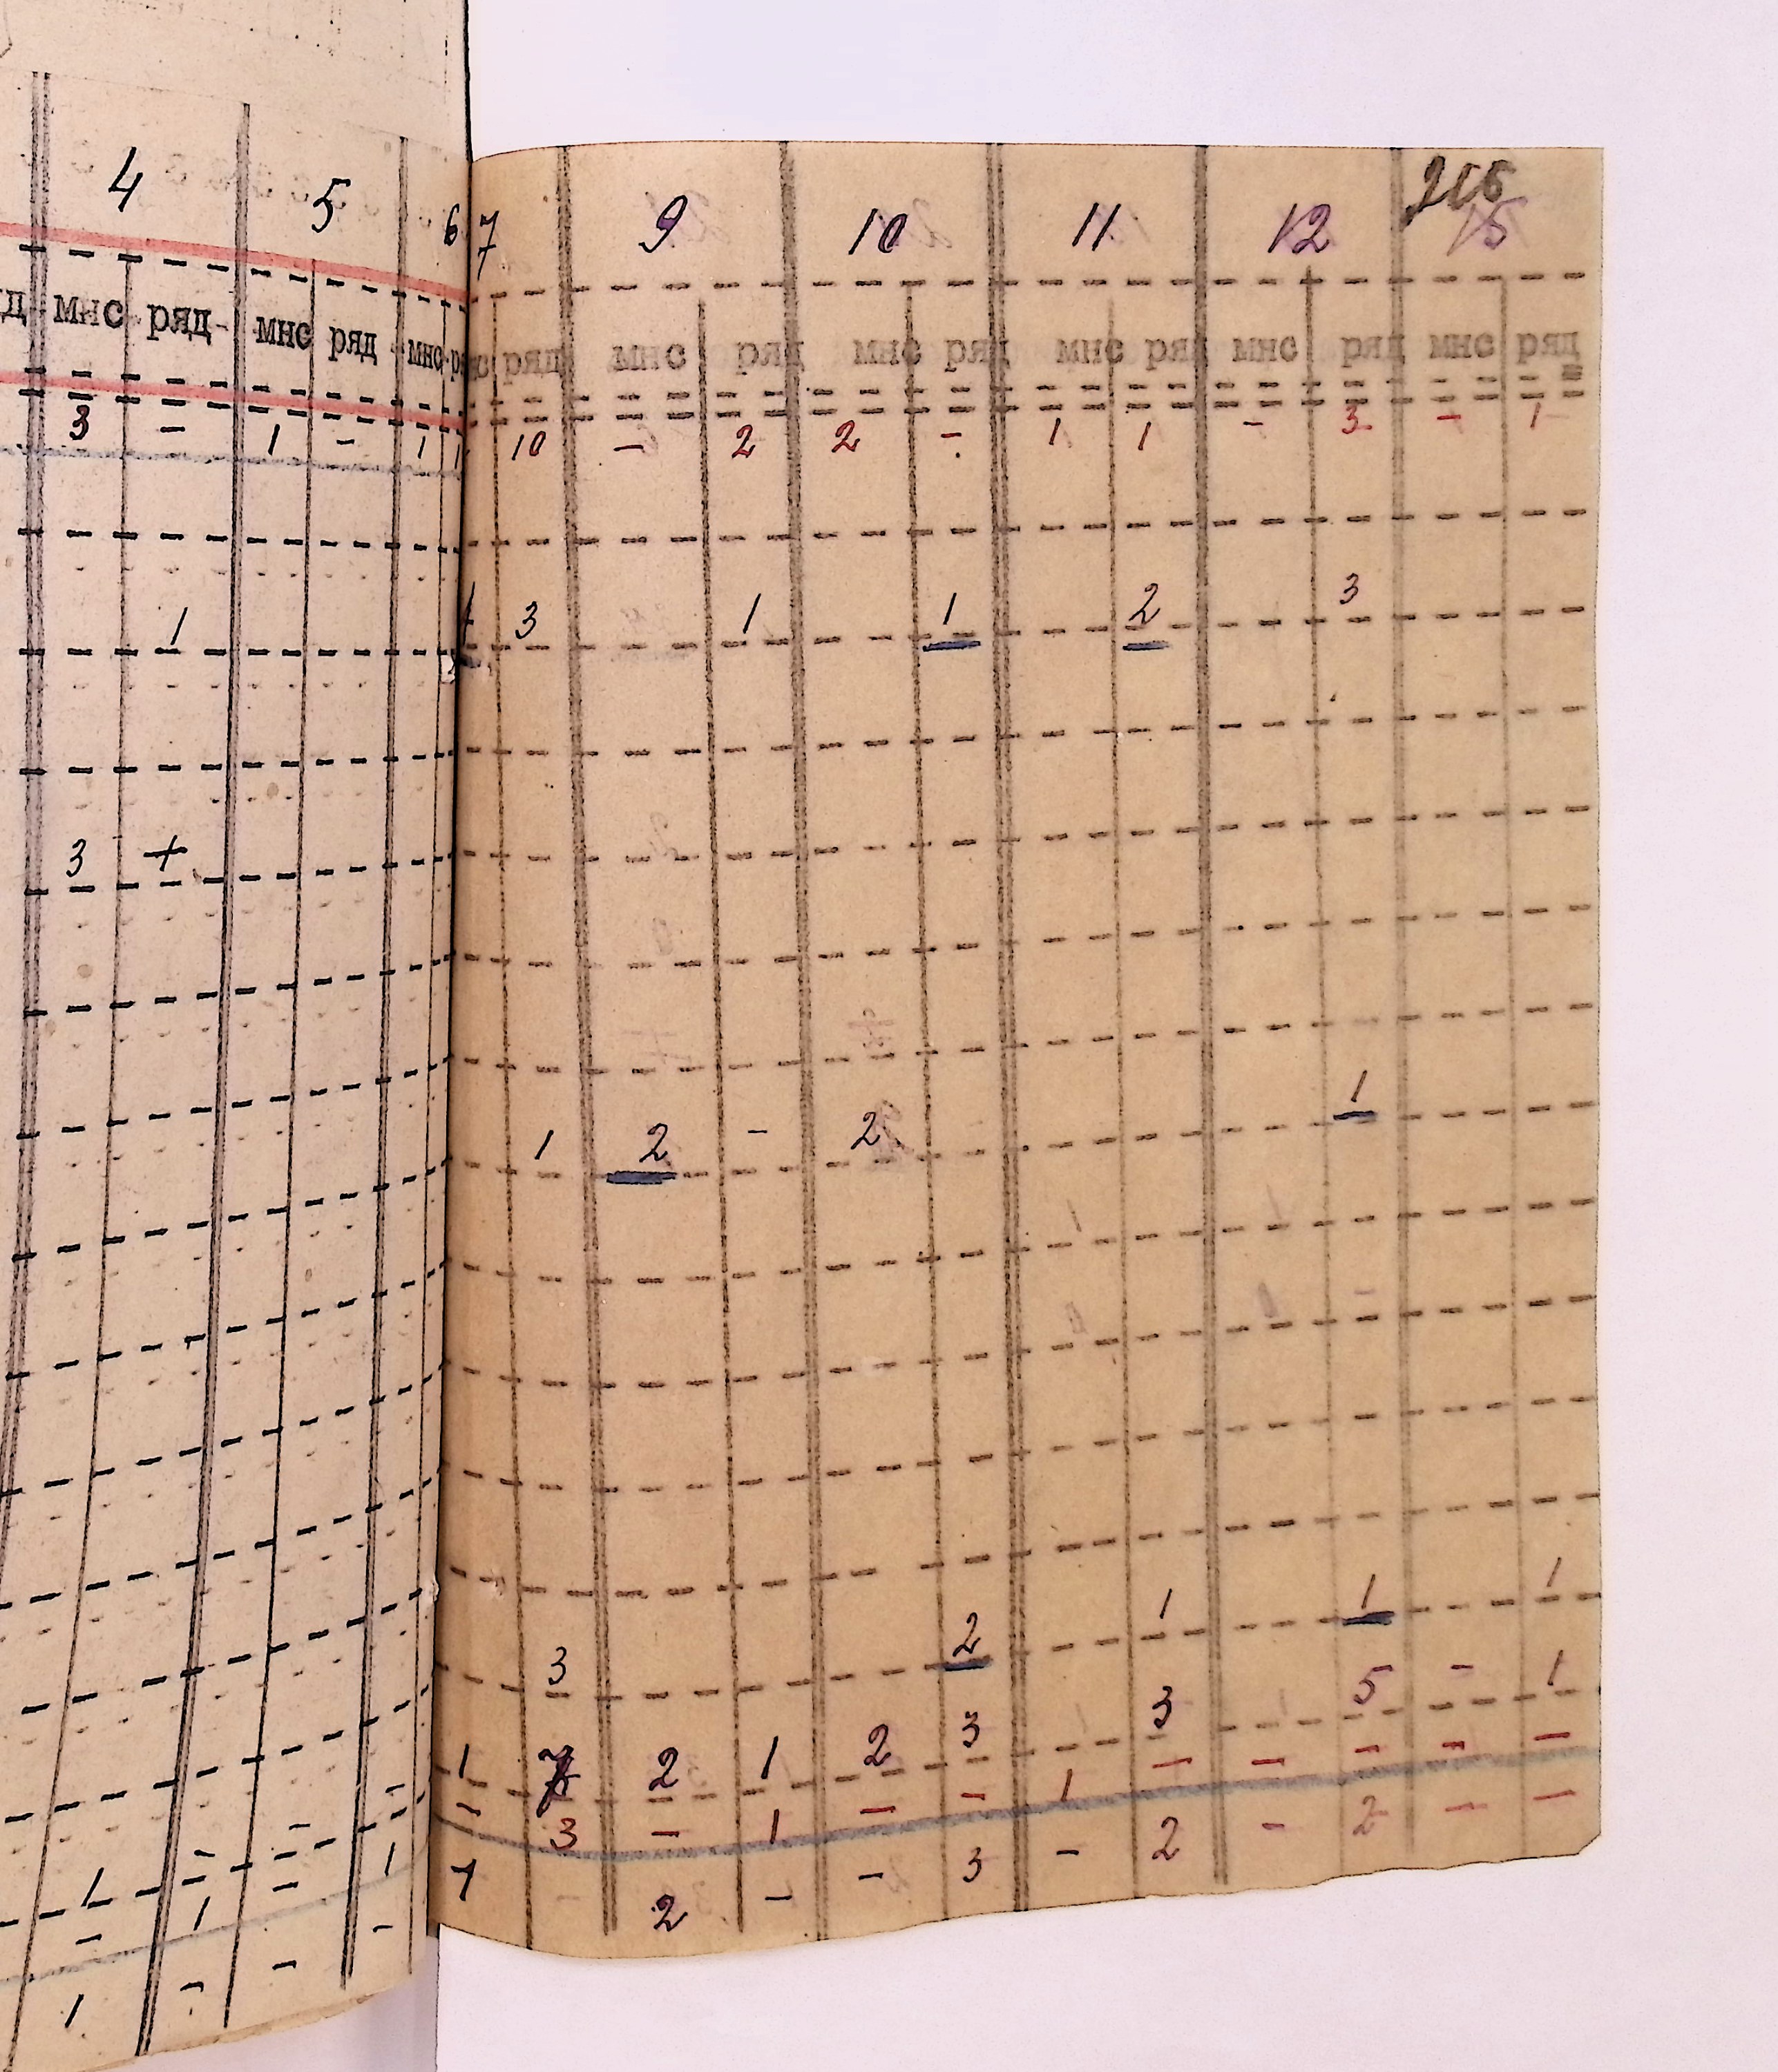 4 5 6 7 9 10 11 12 15
мнс ряд мнс ряд мнс ряд мнс ряд мнс ряд мнс ряд мнс ряд мнс ряд
3 - 1 - 1 1 10 - 2 2 - 1 1 - 3 - 1
1 3 1 1 2 3
3 +
1 2 - 2 1
3 2 1 1 1
1 2 1 2 3 3 5 - 1
- 3 - 1 - - 1 - - - - -
1 2 - - 3 - 2 - 2 - -